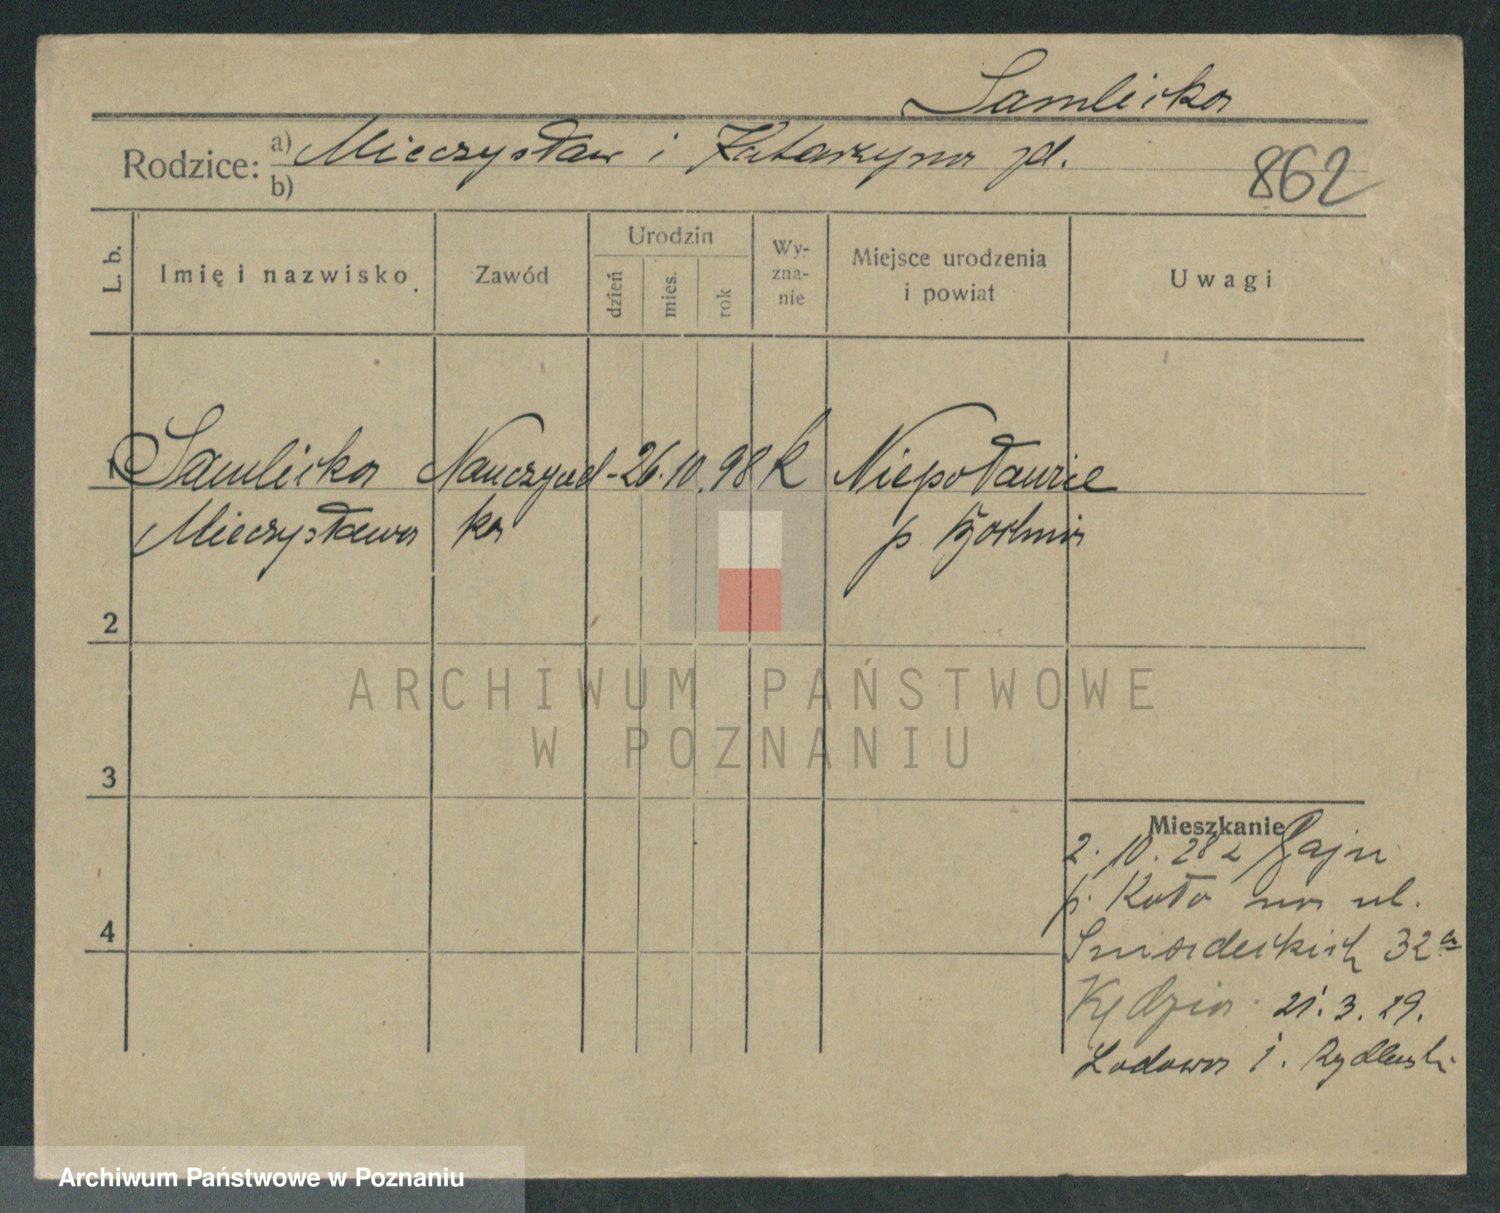 Samlicka
Rodzice: a) Mieczysław i Katarzyna zd.
b)
862
L. b.
Imię i nazwisko
Zawód
Urodzin
dzień
mies.
rok
Wy-
zna-
nie
Miejsce urodzenia
i powiat
Uwagi
1 Samlicka Nauczyciel- 26. 10. 98 k Niepołomice
Mieczysława ka p. Bochnia
2
3
4
Mieszkanie
2. 10. 28 z
p. Koło na ul.
Śniadeckich 32a
Kędzia 21. 3. 29.
Lodowa 1. Rydlewski
ARCHIWUM PAŃSTWOWE
W POZNANIU
Archiwum Państwowe w Poznaniu